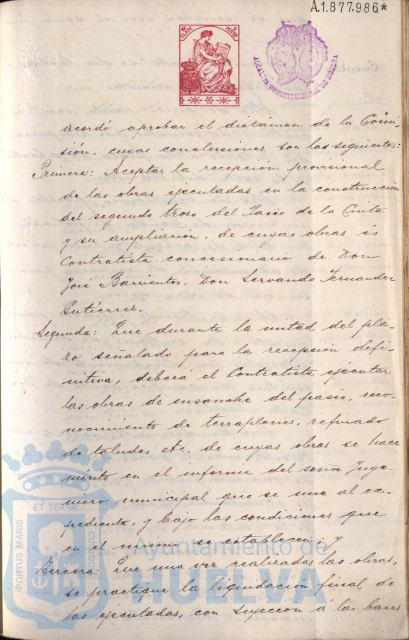 A.1.877.986*
ALCALDIA CONSTITUCIONAL DE HUELVA
acordó aprobar el dictámen de la Comi-
sión, cuyas conclusiones son las siguientes:
Primera: Aceptar la recepción provisional
de las obras ejecutadas en la construcción
del segundo trozo del Paseo de la Cinta
y su ampliación, de cuyas obras es
Contratista concesionario de Don
José Barrientos, Don Servando Fernandez
Gutiérrez.
Segunda: Que durante la mitad del pla-
zo señalado para la recepción defi-
nitiva, deberá el Contratista ejecutar
las obras de ensanche del paseo, reco-
nocimiento de terraplenes, refinado
de taludes, etc. de cuyas obras se hace
mérito en el informe del señor Inge-
niero municipal que se une al ex-
pediente, y bajo las condiciones que
en el mismo se establecen, y
Tercera: Que una vez realizadas las obras,
se practique la liquidación final de
las ejecutadas, con sujeción á las bases
PORTUS MARIS
ET TERRAE
CUSTODIA
Ayuntamiento de
HUELVA